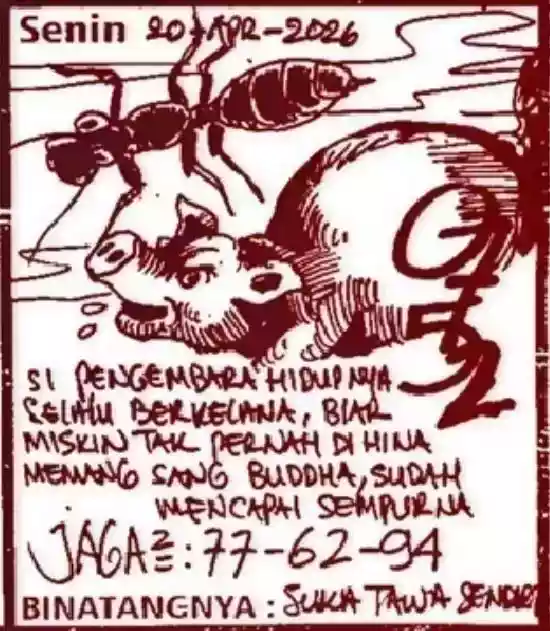 Senin 20-APR-2026
SI PENGEMBARA HIDUPNYA
SELALU BERKELANA, BIAR
MISKIN TAK PERNAH DI HINA
MEMANG SANG BUDDHA, SUDAH
MENCAPAI SEMPURNA
JAGA2=: 77-62-94
BINATANGNYA : SUKA TAWA SENDIRI